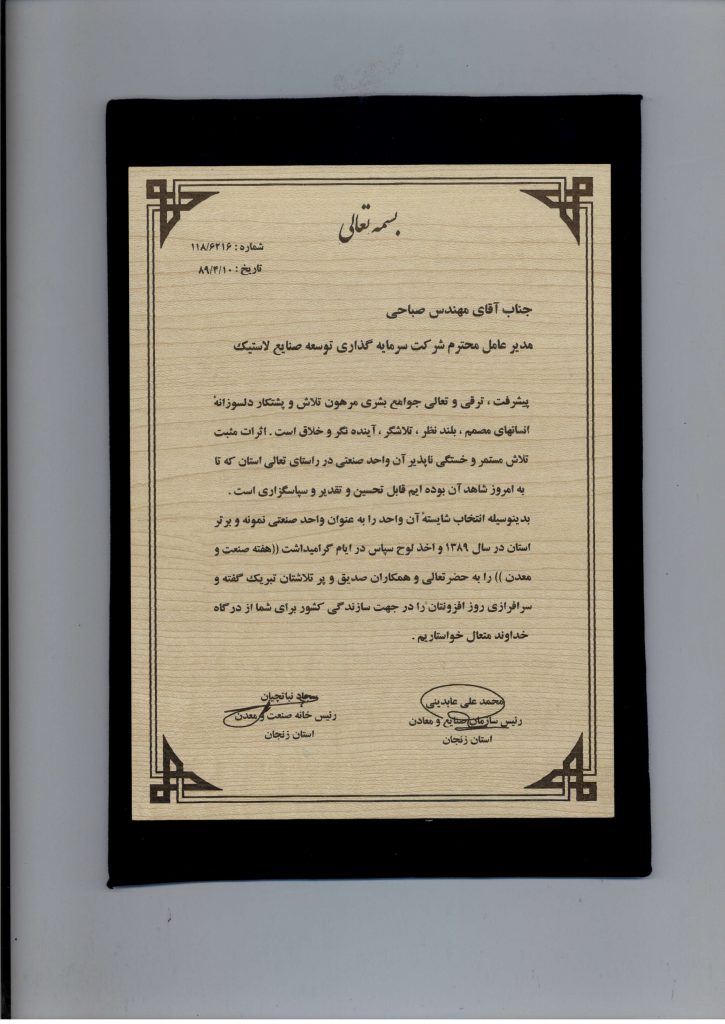 بسمه تعالی
شماره : ۱۱۸/۶۲۱۶
تاریخ : ۸۹/۴/۱۰
جناب آقای مهندس صباحی
مدیر عامل محترم شرکت سرمایه گذاری توسعه صنایع لاستیک
پیشرفت ، ترقی و تعالی جوامع بشری مرهون تلاش و پشتکار دلسوزانهٔ
انسانهای مصمم ، بلند نظر ، تلاشگر ، آینده نگر و خلاق است . اثرات مثبت
تلاش مستمر و خستگی ناپذیر آن واحد صنعتی در راستای تعالی استان که تا
به امروز شاهد آن بوده ایم قابل تحسین و تقدیر و سپاسگزاری است .
بدینوسیله انتخاب شایستهٔ آن واحد را به عنوان واحد صنعتی نمونه و برتر
استان در سال ۱۳۸۹ و اخذ لوح سپاس در ایام گرامیداشت ((هفته صنعت و
معدن )) را به حضرتعالی و همکاران صدیق و پر تلاشتان تبریک گفته و
سرافرازی روز افزونتان را در جهت سازندگی کشور برای شما از درگاه
خداوند متعال خواستاریم .
محمد علی عابدینی
رئیس سازمان صنایع و معادن
استان زنجان
سجاد نباتچیان
رئیس خانه صنعت و معدن
استان زنجان